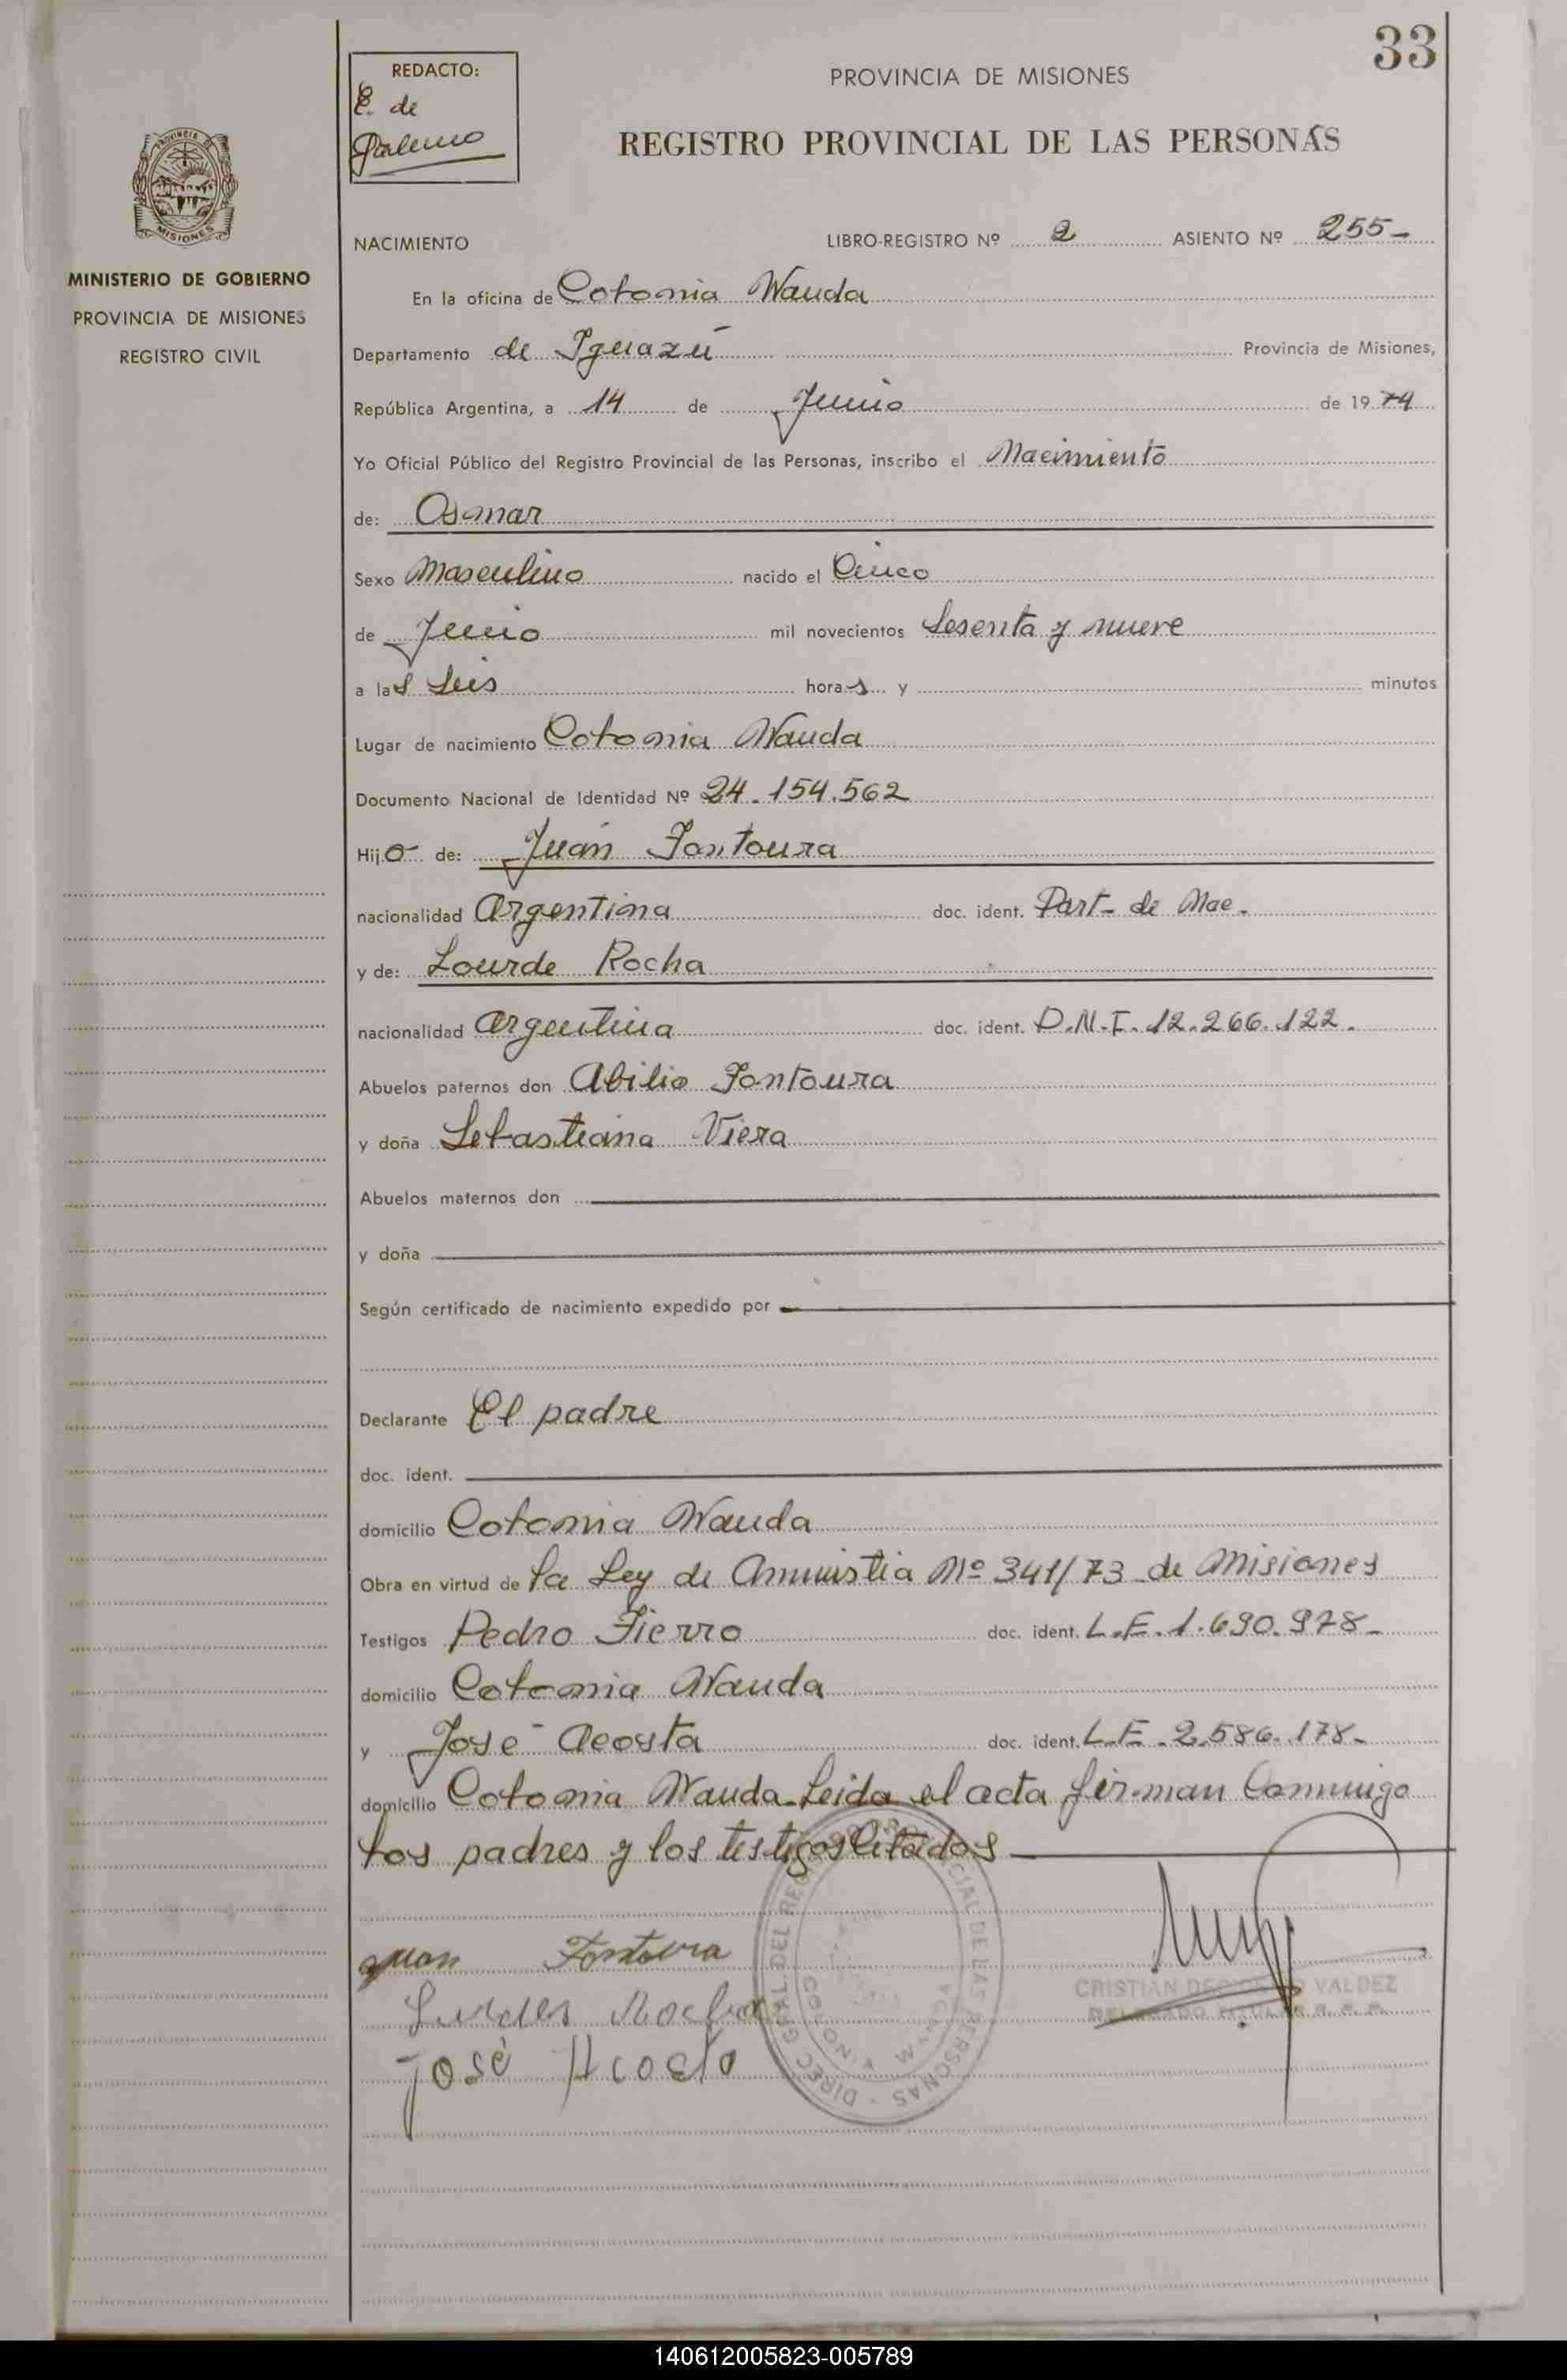 33
REDACTO:
E. de
Palermo
PROVINCIA DE MISIONES
REGISTRO PROVINCIAL DE LAS PERSONAS
PROVINCIA DE
MISIONES
MINISTERIO DE GOBIERNO
PROVINCIA DE MISIONES
REGISTRO CIVIL
NACIMIENTO LIBRO-REGISTRO Nº 2 ASIENTO Nº 255-
En la oficina de Colonia Wanda
Departamento de Iguazú Provincia de Misiones,
República Argentina, a 14 de Junio de 1974
Yo Oficial Público del Registro Provincial de las Personas, inscribo el Nacimiento
de: Osmar
Sexo Masculino nacido el Cinco
de Junio mil novecientos Sesenta y nueve
a las Seis horas y minutos
Lugar de nacimiento Colonia Wanda
Documento Nacional de Identidad Nº 24.154.562
Hijo de: Juan Fontoura
nacionalidad Argentina doc. ident. Part- de Nac.
y de: Lourde Rocha
nacionalidad Argentina doc. ident. D.N.I. 12.266.122.
Abuelos paternos don Abilio Fontoura
y doña Sebastiana Viera
Abuelos maternos don
y doña
Según certificado de nacimiento expedido por
Declarante El padre
doc. ident.
domicilio Colonia Wanda
Obra en virtud de la Ley de Amnistia Nº 341/73 de Misiones
Testigos Pedro Fierro doc. ident. L.E. 1.690.978-
domicilio Colonia Wanda
y José Acosta doc. ident. L.E. 2.586.178-
domicilio Colonia Wanda-Leida el acta firman Conmigo
los padres y los testigos Citados
Juan Fontoura
Lurdes Rocha
José Acosta
DIREC GRAL DEL REGISTRO PROVINCIAL DE LAS PERSONAS
COLONIA WANDA
CRISTIAN VALDEZ
DELEGADO TITULAR R. P. P.
140612005823-005789